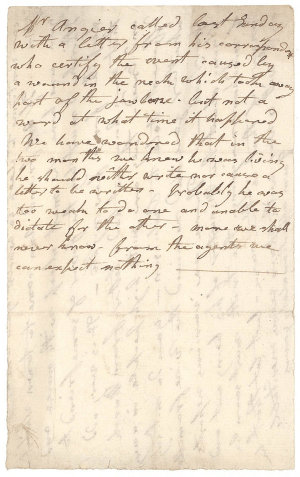 Mr Angier called last Sunday
with a letter from his correspondent
who certify the event caused by
a wound in the neck which took away
part of the jawbone - but not a
word at what time it happened
We have wondered that in the
two months we know he was living
he should neither write nor cause a
letter to be written - Probably he was
too weak to do one and unable to
dictate for the other - more we shall
never know - from the agents we
can expect nothing